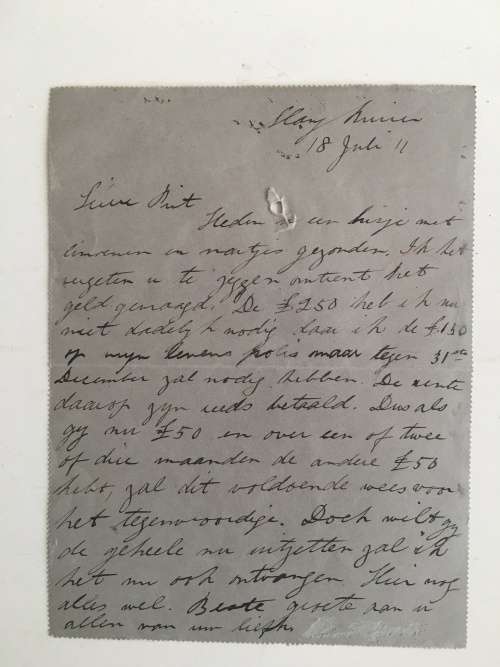 18 Juli 11
Lieve Piet
Heden is een kisje met
en nartjes gezonden. Ik het
vergeten u te zeggen omtrent het
geld gevraagd. De £250 heb ik nu
niet dadelijk nodig daar ik de £150
op myn levens polis maar tegen 31ste
December zal nodig hebben. De rente
daarop zyn reeds betaald. Dus als
gy nu £50 en over een of twee
of drie maanden de andere £50
hebt, zal dit voldoende wees voor
het tegenwoordige. Doch wilt gy
de geheele nu uitzetten zal ik
het nu ook ontvangen. Hier nog
alles wel. Beste groete aan u
allen van uw liefh.